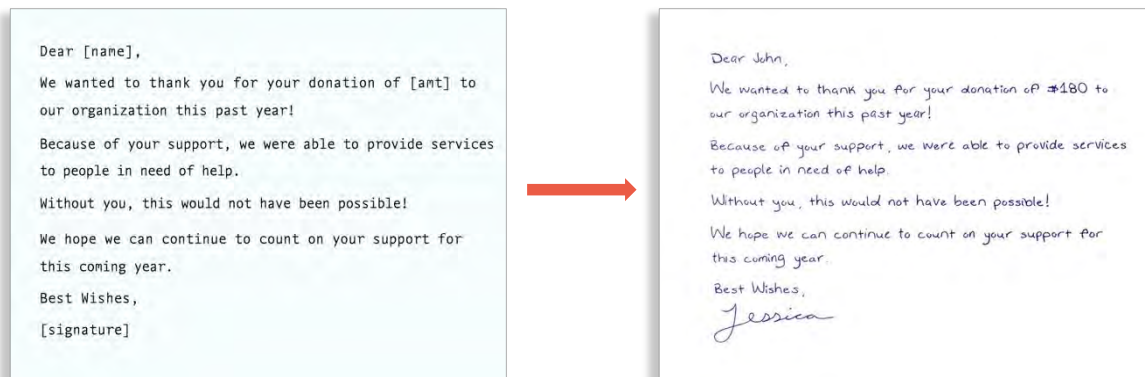 Dear [name],
We wanted to thank you for your donation of [amt] to
our organization this past year!
Because of your support, we were able to provide services
to people in need of help.
Without you, this would not have been possible!
We hope we can continue to count on your support for
this coming year.
Best Wishes,
[signature]
Dear John,
We wanted to thank you for your donation of $180 to
our organization this past year!
Because of your support, we were able to provide services
to people in need of help.
Without you, this would not have been possible!
We hope we can continue to count on your support for
this coming year.
Best Wishes,
Jessica